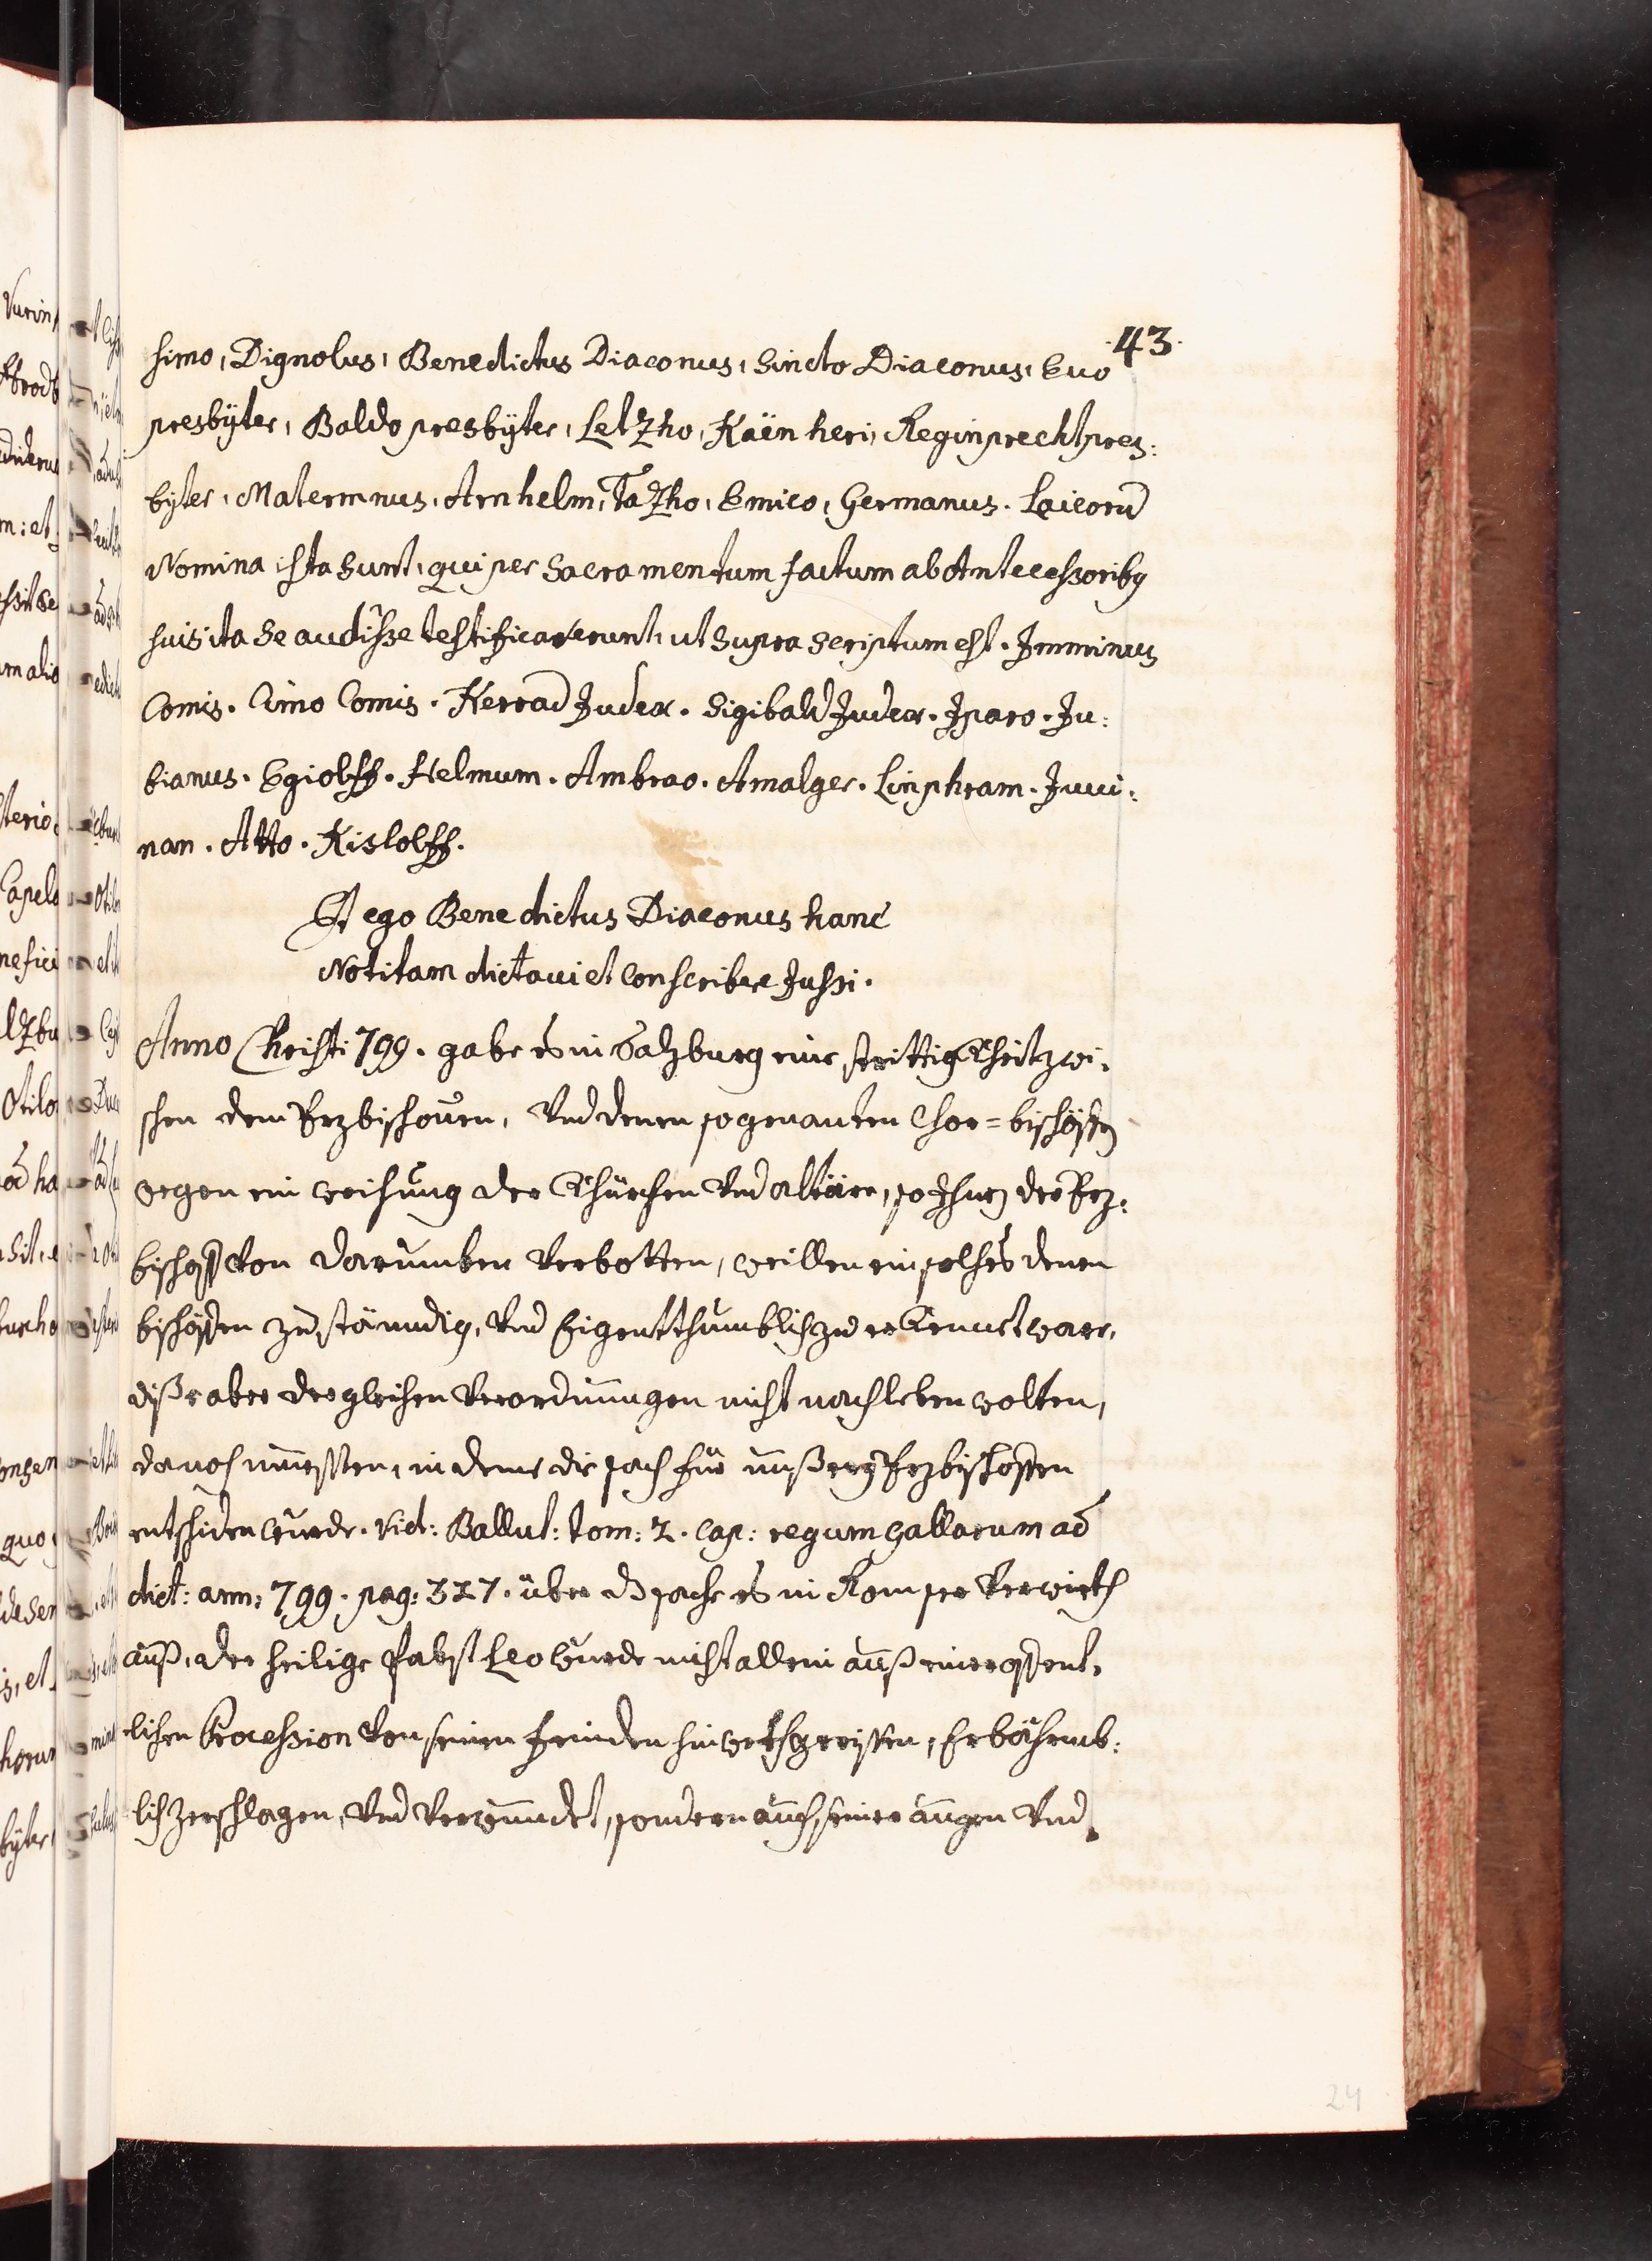 43.
simo, Dignolus, Benedictus Diaconus, Sincto Diaconus, Euo
presbÿter, Baldo presbÿter, Letzho, Kaïnheri, Reginprecht pres:
byter, Maternnus, Arnhelm, Tazho, Emico, Germanus. Laicorū
Nomina ista sunt, qui per Sacramentum factum ab Antecessoribȝ
suis ita se audisse testificaverunt, ut supra scriptum est. Imminus
Comis. Cimo Comis. Kerrad Judex. Sigibald Judex. Iparo. Ju:
bianus. Egiolff. Helmum. Ambrao. Amalger. Linphram. Juui:
nan. Atto. Kislolff.
Et ego Benedictus Diaconus hanc
Notitam dictaui et conscribere Jussi.
Anno Christi 799. gabe es in Salzburg eine strittigkheit zwi,
schen dem Erzbischouen, Vnd denen sogenanten Chor=bischöffen
wegen ein weihung der Khürchen Vnd altäre, so Ihnen der Erz,
bischoff von darumben Verbotten, weillen ein solches denen
bischöffen zu ständig, Vnd Eigentthumblich zu erkennet ware,
disse aber dergleichen Verordnungen nicht nachleben wolten,
danoch muessten, in deme die sach für unsseren Erzbischoffen
entschiden wurde. vid: Ballut: tom: 2. cap: regum gallarum ad
dict: ann: 799. pag: 327. über ds sache es in Rom ser Verwirth
auß, der heilige Pabst Leo wurde nicht allein auß einer offent,
lichen Procession von seinen feinden hinweckhgerissen, Erbärmb:
lich zerschlagen, Vnd Verwundet, sondern auch seiner augen Vnd
24